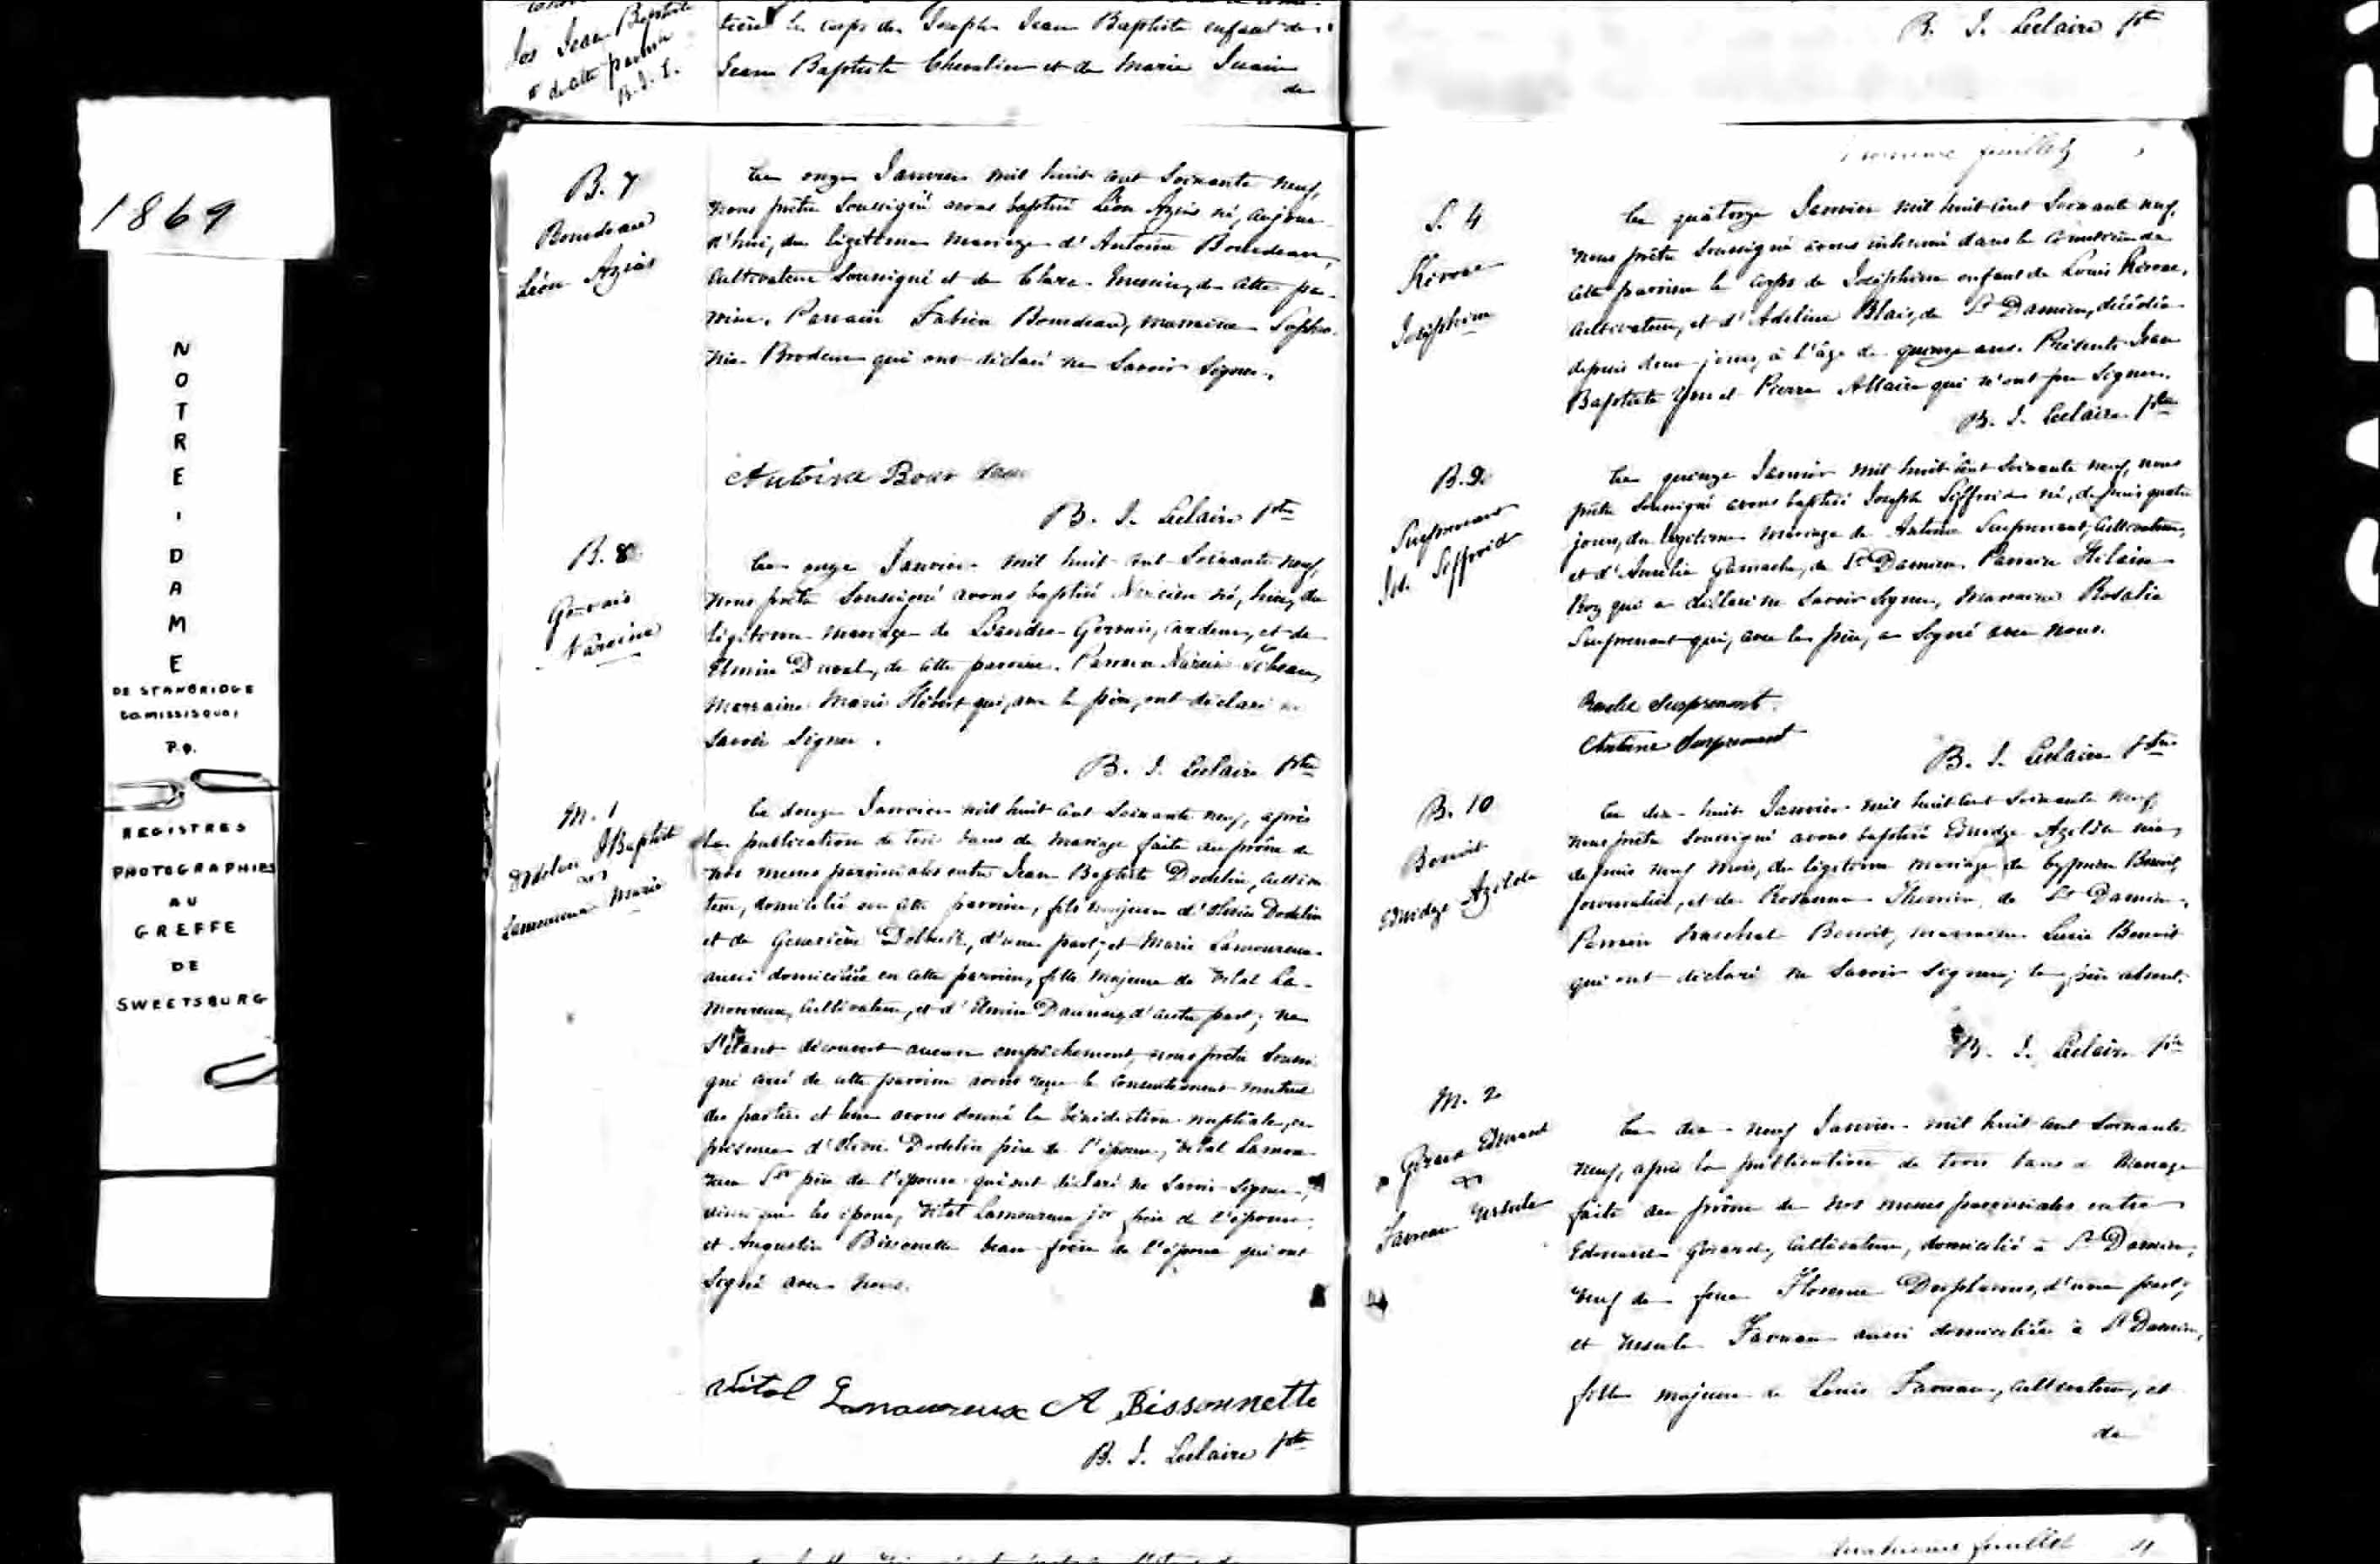 1869
NOTRE-DAME
DE STANBRIDGE
Co MISSISQUOI
P.Q.
REGISTRES
PHOTOGRAPHIES
AU
GREFFE
DE
SWEETSBURG
Jos Jean Baptiste
de cette paroisse
B. J. L.
le corps de Joseph Jean Baptiste enfant de
Jean Baptiste Chevalier et de Marie
de
B. 7
Bourdeau
Léon Azias
Le onze Janvier mil huit cent soixante neuf,
nous prêtre soussigné avons baptisé Léon Azias né, aujour-
d'hui, du légitime mariage d'Antoine Bourdeau,
cultivateur soussigné et de Clara Messier, de cette pa-
roisse. Parrain Fabien Bourdeau, marraine Sophro-
nie Brodeur qui ont déclaré ne savoir signer.
Antoine Bourdeau
B. J. Leclaire ptre
B. 8
Gervais
Narcisse
Le onze Janvier mil huit cent soixante neuf,
nous prêtre soussigné avons baptisé Narcisse né, hier, du
légitime mariage de Léandre Gervais, cardeur, et de
Elmire Duval, de cette paroisse. Parrain Narcisse
marraine Marie Hébert qui, avec le père, ont déclaré ne
savoir signer.
B. J. Leclaire ptre
M. 1
Dodelin J Baptiste
&
Lamoureux Marie
Le douze Janvier mil huit cent soixante neuf, après
la publication de trois bans de mariage faite au prône de
nos messes paroissiales entre Jean Baptiste Dodelin, cultiva-
teur, domicilié en cette paroisse, fils majeur d'Olivier Dodelin
et de Geneviève d'une part; et Marie Lamoureux
aussi domiciliée en cette paroisse, fille majeure de Vital La-
moureux, cultivateur, et d'Elmire d'autre part; ne
s'étant découvert aucun empêchement, nous prêtre soussi-
gné curé de cette paroisse avons reçu le consentement mutuel
des parties et leur avons donné la bénédiction nuptiale, en
présence d'Olivier Dodelin père de l'époux, Vital Lamou-
reux Sr père de l'épouse qui ont déclaré ne savoir signer,
ainsi que les époux, Vital Lamoureux jr frère de l'épouse
et Augustin Bissonnette beau-frère de l'époux qui ont
signé avec nous.
Vital Lamoureux A Bissonnette
B. J. Leclaire ptre
B. J. Leclaire ptre
Troisième feuillet 3
S. 4
Joséphine
Le quatorze Janvier mil huit cent soixante neuf,
nous prêtre soussigné avons inhumé dans le cimetière de
cette paroisse le corps de Joséphine enfant de Louis
cultivateur, et d'Adeline Blais, de St Damien, décédée
depuis deux jours, à l'âge de quinze ans. Présents Jean
Baptiste et Pierre Allaire qui n'ont pu signer.
B. J. Leclaire ptre
B. 9
Surprenant
Jh. Siffroid
Le quinze Janvier mil huit cent soixante neuf, nous
prêtre soussigné avons baptisé Joseph Siffroid né, depuis quatre
jours, du légitime mariage de Antoine Surprenant, cultivateur,
et d'Aurélie Gamache, de St Damien. Parrain Hilaire
Roy qui a déclaré ne savoir signer, marraine Rosalie
Surprenant qui, avec le père, a signé avec nous.
Surprenant
Antoine Surprenant
B. J. Leclaire ptre
B. 10
Benoit
Edwidge Azilda
Le dix-huit Janvier mil huit cent soixante neuf,
nous prêtre soussigné avons baptisé Edwidge Azilda née,
depuis neuf mois, du légitime mariage de Cyprien Benoit,
journalier, et de Rosanna Therrien, de St Damien.
Parrain Paschal Benoit, marraine Lucie Benoit
qui ont déclaré ne savoir signer; le père absent.
B. J. Leclaire ptre
M. 2
Girard Edouard
&
Favreau Ursule
Le dix-neuf Janvier mil huit cent soixante
neuf, après la publication de trois bans de mariage
faite au prône de nos messes paroissiales entre
Edouard Girard, cultivateur, domicilié à St Damien,
veuf de feue Florence Desplaines, d'une part;
et Ursule Favreau aussi domiciliée à St Damien,
fille majeure de Louis Favreau, cultivateur, et
de
Quatrième feuillet 4